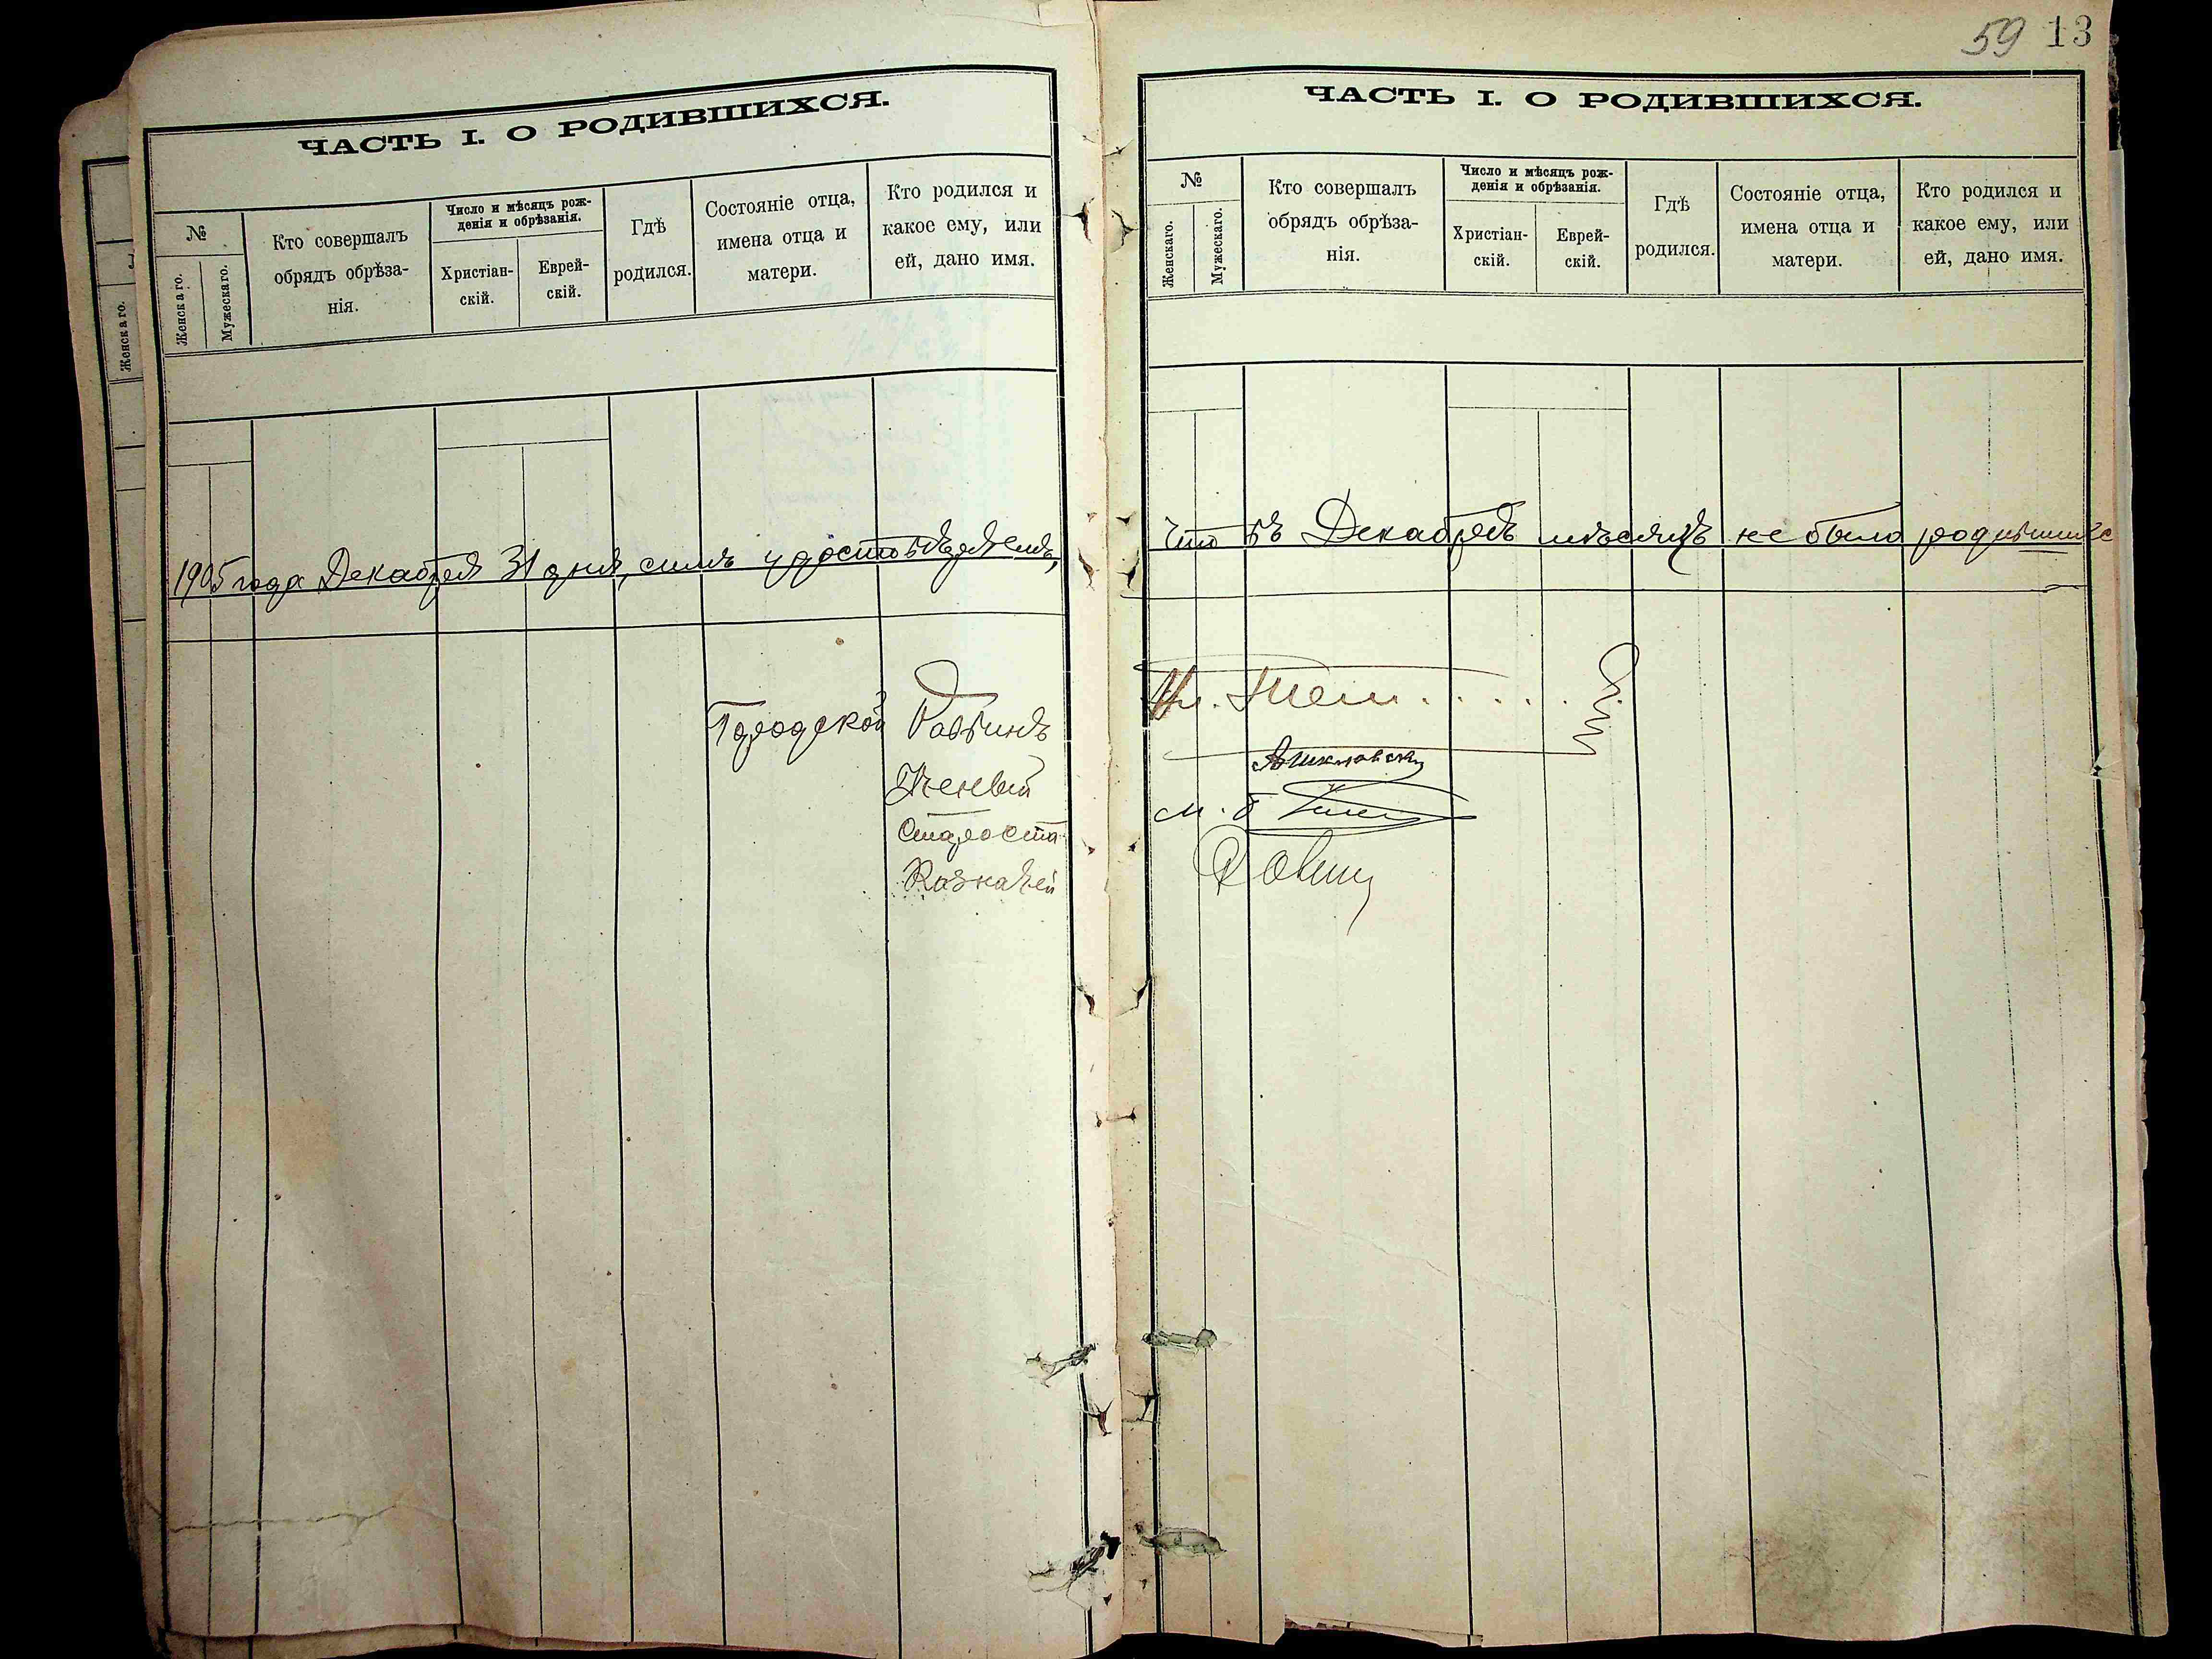 ЧАСТЬ I. О РОДИВШИХСЯ.
№
Женскаго.
Мужескаго.
Кто совершалъ
обрядъ обрѣза-
нія.
Число и мѣсяцъ рож-
денія и обрѣзанія.
Христіан-
скій.
Еврей-
скій.
Гдѣ
родился.
Состояніе отца,
имена отца и
матери.
Кто родился и
какое ему, или
ей, дано имя.
1905 года Декабря 31 дня, симъ удостовѣряемъ,
Городской Раввинъ
Ученый
Староста
Казначей
Женскаго.
59 13
ЧАСТЬ I. О РОДИВШИХСЯ.
№
Женскаго.
Мужескаго.
Кто совершалъ
обрядъ обрѣза-
нія.
Число и мѣсяцъ рож-
денія и обрѣзанія.
Христіан-
скій.
Еврей-
скій.
Гдѣ
родился.
Состояніе отца,
имена отца и
матери.
Кто родился и
какое ему, или
ей, дано имя.
что въ Декабрѣ мѣсяцѣ не было родившихс